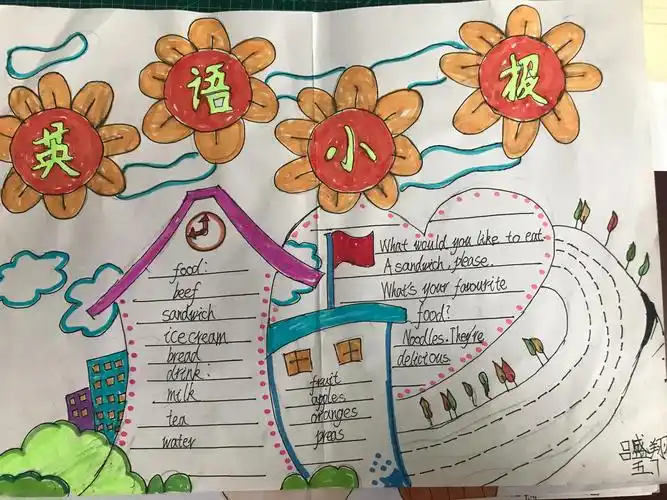 英语小极
food:
beef
sandwich
ice cream
bread
drink:
milk
tea
water
fruit
apples
oranges
preas
What would you like to eat.
A sandwich, please.
What's your favourite
food?
Noodles. They're
delicious
吕盛
五